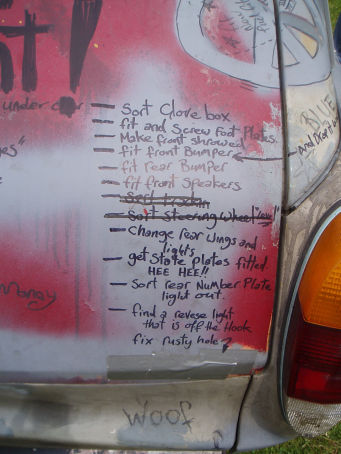 under
- Sort Glove box
- fit and Screw Foot Plates.
- Make front shrowed
- fit front Bumper
- fit rear Bumper
- fit front Speakers
- Sort
- Sort Steering wheel "love"
- Change rear wings and
lights
- get State Plates fitted.
HEE HEE!!
- Sort rear Number Plate
light out.
- find a revese light
that is off the Hook
fix rusty hole?
BLUE
And
woof